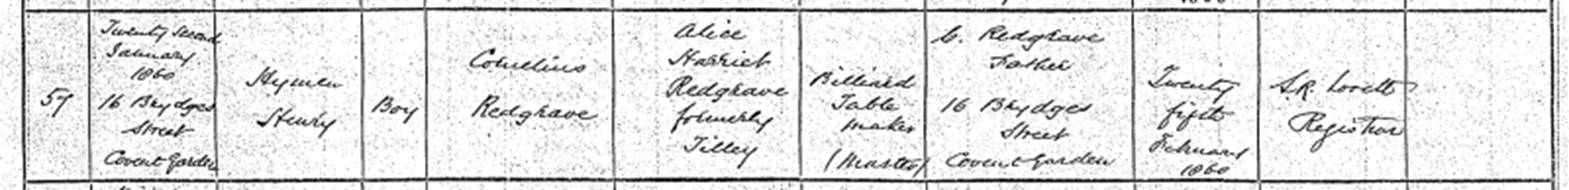 57
Twenty second
January
1860
16 Brydges
Street
Covent Garden
Hymen
Henry
Boy
Cornelius
Redgrave
Alice
Harriet
Redgrave
formerly
Tilley
Billiard
Table
maker
(Master)
C. Redgrave
Father
16 Brydges
Street
Covent Garden
Twenty
fifth
February
1860
S.R. Lovett
Registrar